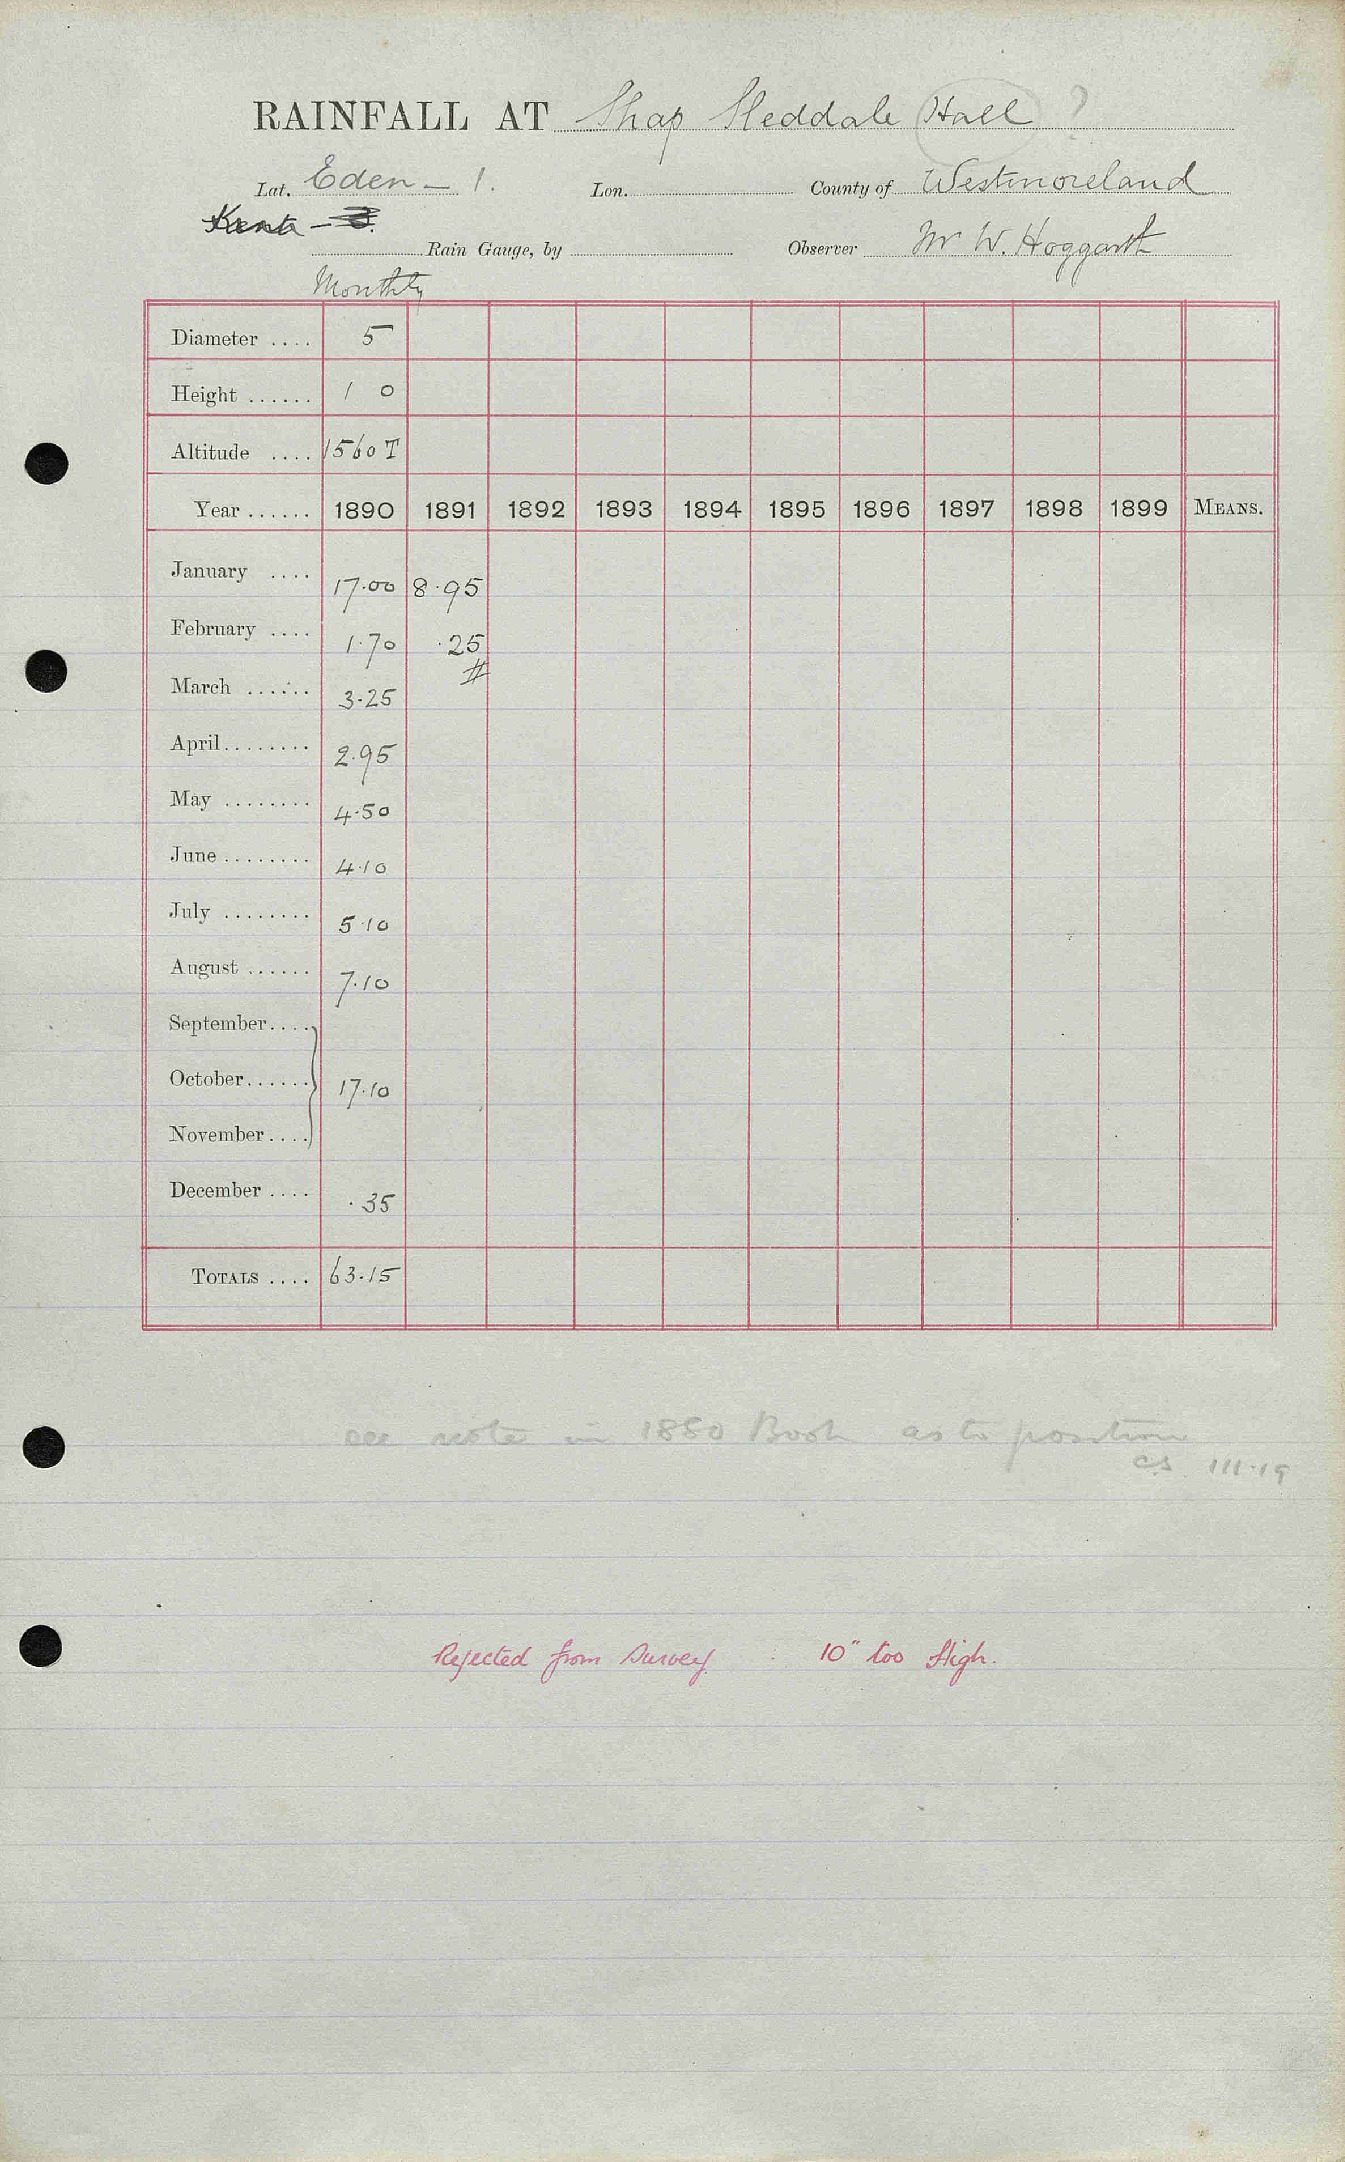 RAINFALL AT Shap Sleddale Hall ?
Lat. Eden - 1. Lon. County of Westmoreland
Rain Gauge, by Observer Mr W. Hoggarth
Monthly
Diameter .... 5
Height ...... 1 0
Altitude .... 1560 T
Year ...... 1890 1891 1892 1893 1894 1895 1896 1897 1898 1899 MEANS.
January .... 17.00 8.95
February .... 1.70 .25
March ...... 3.25
April........ 2.95
May ........ 4.50
June ........ 4.10
July ........ 5.10
August ...... 7.10
September....
October...... 17.10
November....
December .... .35
TOTALS .... 63.15
see note in 1880 Book as to position
cs 111.19
Rejected from Survey. 10" too High.